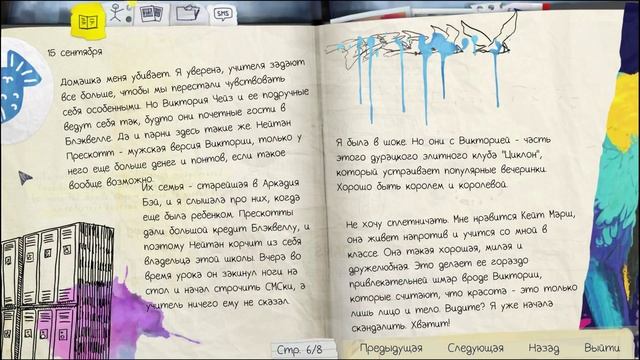 SMS
15 сентября
Домашка меня убивает. Я уверена, учителя задают
все больше, чтобы мы перестали чувствовать
себя особенными. Но Виктория Чейз и ее подручные
ведут себя так, будто они почетные гости в
Блэквелле. Да и парни здесь такие же. Нейтан
Прескотт - мужская версия Виктории, только у
него еще больше денег и понтов, если такое
вообще возможно.
Их семья - старейшая в Аркадия
Бэй, и я слышала про них, когда
еще была ребенком. Прескотты
дали большой кредит Блэквеллу, и
поэтому Нейтан корчит из себя
владельца этой школы. Вчера во
время урока он закинул ноги на
стол и начал строчить СМСки, а
учитель ничего ему не сказал.
Я была в шоке. Но они с Викторией - часть
этого дурацкого элитного клуба "Циклон",
который устраивает популярные вечеринки.
Хорошо быть королем и королевой.
Не хочу сплетничать. Мне нравится Кейт Марш,
она живет напротив и учится со мной в
классе. Она такая хорошая, милая и
дружелюбная. Это делает ее гораздо
привлекательней шмар вроде Виктории,
которые считают, что красота - это только
лишь лицо и тело. Видите? Я уже начала
скандалить. Хватит!
Стр. 6/8
Предыдущая
Следующая
Назад
Выйти